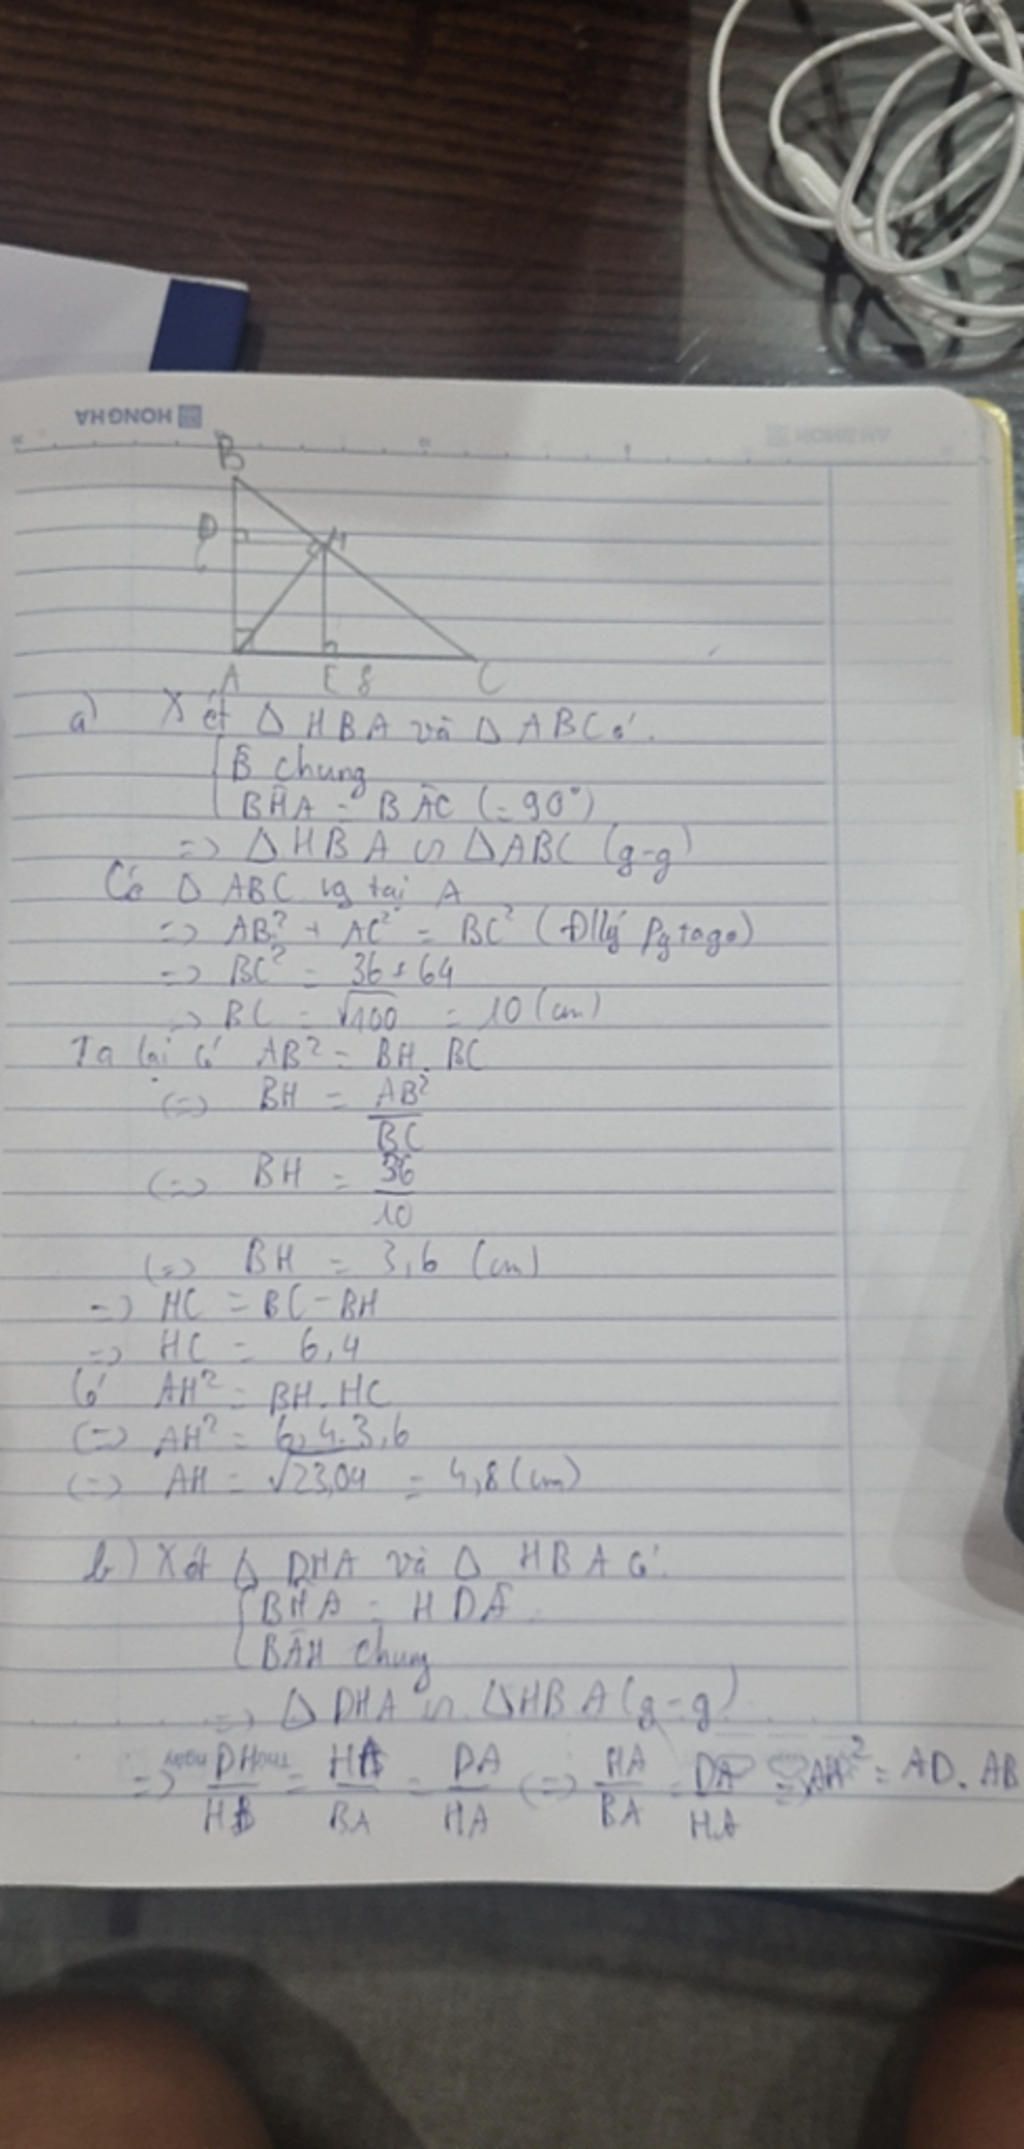 HONG HA
B
D
H
6
A E 8 C
a) Xét Δ HBA và Δ ABC có:
B̂ chung
BĤA = BÂC (= 90°)
=> Δ HBA ∽ Δ ABC (g-g)
Có Δ ABC vg tại A
=> AB² + AC² = BC² (Đlý Pytago)
=> BC² = 36 + 64
=> BC = √100 = 10 (cm)
Ta lại có AB² = BH . BC
(=> BH = AB²/BC
(=> BH = 36/10
(=> BH = 3,6 (cm)
=> HC = BC - BH
=> HC = 6,4
Có AH² = BH . HC
(=> AH² = 6,4 . 3,6
(=> AH = √23,04 = 4,8 (cm)
b) Xét Δ DHA và Δ HBA có:
BĤA = HD̂A
BÂH chung
=> Δ DHA ∽ Δ HBA (g-g)
=> DH/HB = HA/BA = DA/HA (=> HA/BA = DA/HA => AH² = AD . AB